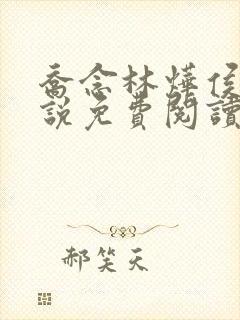 喬念林燁侯
說免費閱讀
郝笑天